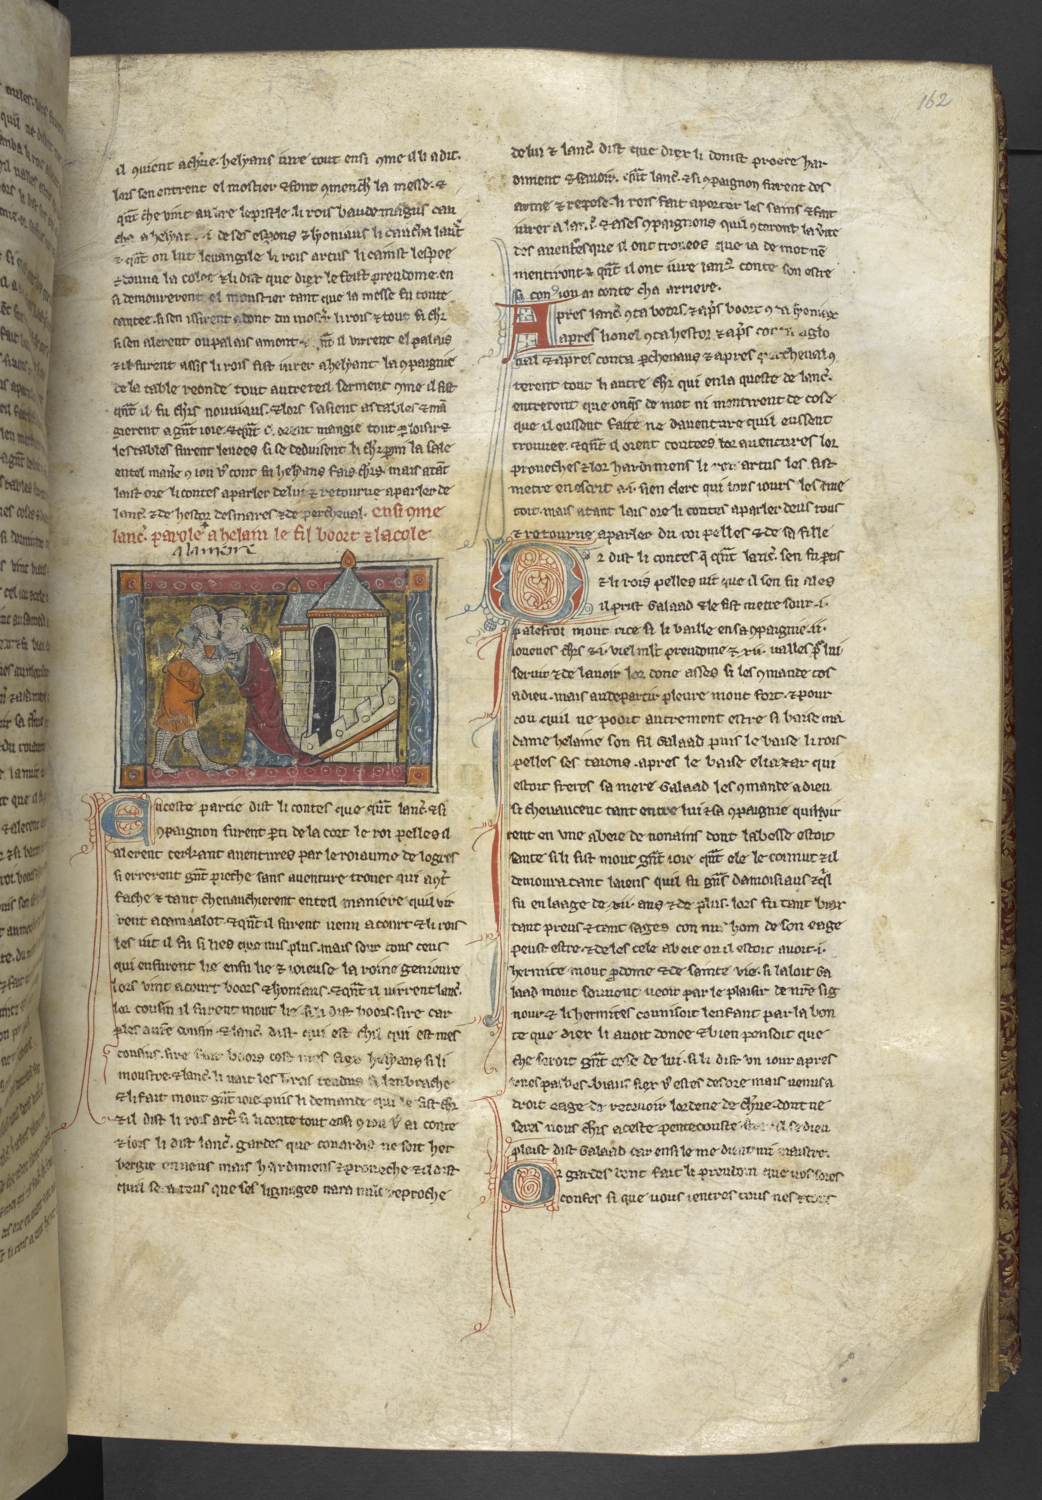 162
il ꝯuient a chr̃e. helyans iure tout ensi ꝯme il li a dit.
lors sen entrent el mostier ⁊ font ꝯmenchr̃ la messe. ⁊
qñt che vint au lire lepistle. li rois baudemagus cau
cha a helyan de ses esp̃ons ⁊ lyoniaus li caucha lautˀ
⁊ qñt on lut leuangile li rois artus li cainst lespee
⁊ douna la colee ⁊ li dist que diex le feist preudome. en
si demourerent el monstier tant que la messe fu toute
cantee. si sen issirent adont du mostˀ. li rois ⁊ tout si chr̃
si sen alerent ou palais amont. ⁊ qñt il vinrent el palais
⁊ il furent assis li rois fist iurer a helyant la ꝯpaignie
de la table reonde tout autreteil serment ꝯme il fist
qñt il fu chr̃s nouuiaus. ⁊ lors sasient as tables ⁊ mã
gierent a gñt ioie. ⁊ qñt il orent mangie tout ꝑ loisir ⁊
les tables furent leuees si se deduisent li chr̃ ꝑmi la sale
en tel manˀe ꝯ ion vꝰ cont fu helyans fais chr̃s. mais atãt
laist ore li contes a parler de lui ⁊ retourne a parler de
lancˀ. ⁊ de hestor des mares ⁊ de percheval. ensi ꝯme
lancˀ. parole a helain le fil boort ⁊ lacole
En ceste partie dist li contes que qñt lancˀ. ⁊ si
ꝯpaignon furent ꝑti de la cort le roi pelles il
alerent cerkant auentures par le roiaume de logres
si errerent gñt pieche sans auenture trouer qui a ꝯt̃
fache ⁊ tant cheuauchierent en teil maniere quil vin
rent a camaalot. ⁊ qñt il furent venu a court ⁊ li rois
les uit il fu si lies que nus plus. mais sour tous ceus
qui en furent lie en fu lie ⁊ ioieuse la roine genieure
lors vint a court boors ⁊ lyonians. ⁊ qñt il virrent lancˀ.
lor cousin il furent mout lie si li dist boors. sire car
ꝑles a ure cousin. ⁊ lancˀ. dist qui est chil qui est mes
cousins. sire fait boors cest mes fiex helyans si li
moustre. ⁊ lancˀ. li vait les bras tendus si lenbrache
⁊ li fait mout gñt ioie. puis li demande qui le fist chr̃
⁊ il dist li rois artˀ. si li conte tout ensi ꝯ iou vꝰ ai conte
⁊ lors li dist lancˀ. gardes que couardie ne soit her
bergie en uous mais hardimens ⁊ proueche ⁊ il dist
quil sera tous que ses lignages nara nuil reproche
de lui ⁊ lancˀ. dist que diex li doinst proece har
diment ⁊ sauoir. qñt lancˀ. ⁊ si ꝯpaignon furent des
arme ⁊ repose. li rois fait aporter les sains ⁊ fait
iurer a lancˀ. ⁊ a ses ꝯpaignons quil ꝯteront la v̾ite
des auentˀes que il ont trouees que ia de mot nen
mentiront ⁊ qñt il ont iure lancˀ. conte son estre
si con iou ai conte cha arriere.
Apres lancˀ. ꝯta boors. ⁊ apˀs boort ꝯta lyoniax
apres lionel ꝯta hestor ⁊ apˀs
ual ⁊ apres conta ꝑcheuaus ⁊ apres
terent tout li autre chr̃ qui en la queste de lancˀ.
entrerent que onqˀs de mot ni mentirent de cose
que il eussent faite ne dauenture quil eussent
trouuee. ⁊ qñt il orent contees lor auentures lor
proueches ⁊ lor hardimens li rois artus les fist
metre en escrit a .i. sien clerc qui tous iours les
toit. mais atant lais ore li contes a parler deus tous
⁊ retourne a parler du roi pelles ⁊ de sa fille
Or dist li contes q̃ qñt lancˀ. sen fu ꝑtis
⁊ li rois pelles uit que il sen fu ales
il prist Galaad ⁊ le fist metre sour .i.
palefroi mout rice si li baille en sa ꝯpaignie .ii.
iouenes chr̃s ⁊ .i. viel mlt̃ preudome ⁊ .xii. uallés pꝰ lui
seruir ⁊ de lauoir lor done asses si les ꝯmande tos
a dieu. mais au departir pleure mout fort. ⁊ pour
cou quil ne poort autrement estre si baise ma
dame helaine son fil Galaad puis le baise li rois
pelles ses taions. apres le baise eliazar qui
estoit freres sa mere Galaad les ꝯmande a dieu
si cheuaucent tant entre lui ⁊ sa ꝯpaignie quil vin
rent en vne abeie de nonains dont labesse estoit
sante si li fist mout gñt ioie qñt ele le connut ⁊ il
demoura tant laiens quil fu gñs damoisiaus ⁊ q̃l
fu en laage de .xv. ans ⁊ de plus. lors fu tant biax
tant preus ⁊ tant sages con nus hom de son eage
peust estre. ⁊ de les cele abeie ou il estoit auoit .i.
hermite mout ꝑdome ⁊ de sainte vie. si laloit Ga
laad mout souuent ueoir par le plaisir de nr̃e sig
nour ⁊ li hermites connisoit lenfant par la bon
te que diex li auoit donee ⁊ bien pensoit que
che seroit gñt cose de lui. si li dist vn iour apres
biaus fiex vꝰ estes desore mais venus a
droit eage de recevoir lordene de chr̃ie. dont ne
seres uous chr̃s a ceste pentecouste
plaist dist Galaad car ensi le me dist mi maistre.
Or gardes dont fait li preudom que vos soies
confes si que uous i entres tous nes ⁊ tous